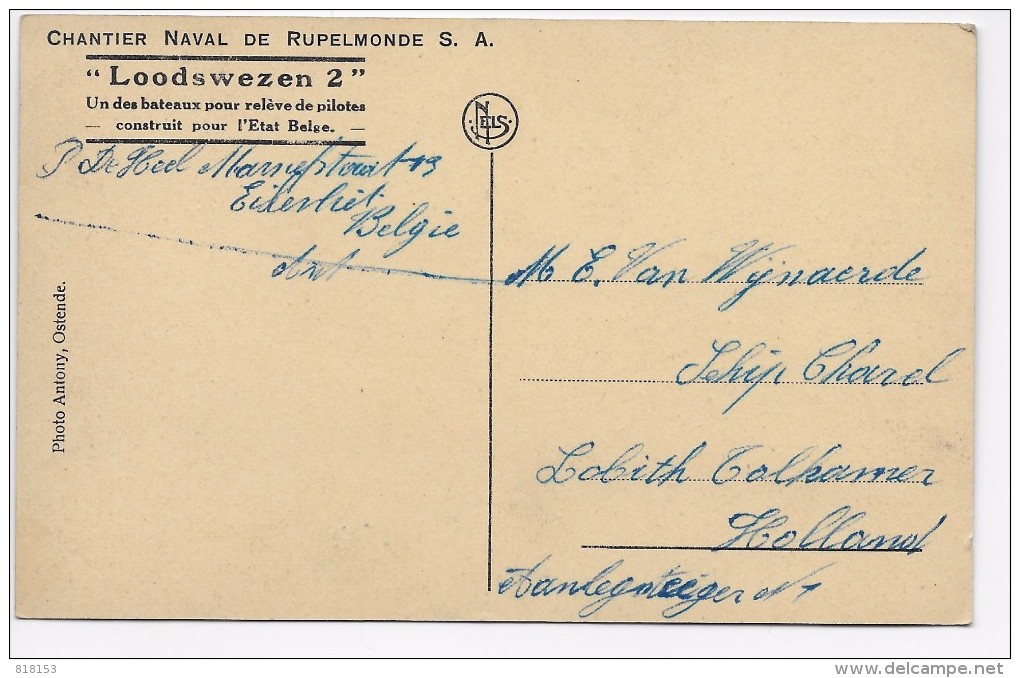 CHANTIER NAVAL DE RUPELMONDE S. A.
“Loodswezen 2”
Un des bateaux pour relève de pilotes
— construit pour l'Etat Belge. —
NELS
P De Heel 13
Belgie
Ant
M E. Van Wijnaerde
Schip Charel
Lobith Tolkamer
Holland
Aanlegsteiger N 1
Photo Antony, Ostende.
818153
delcampe.net